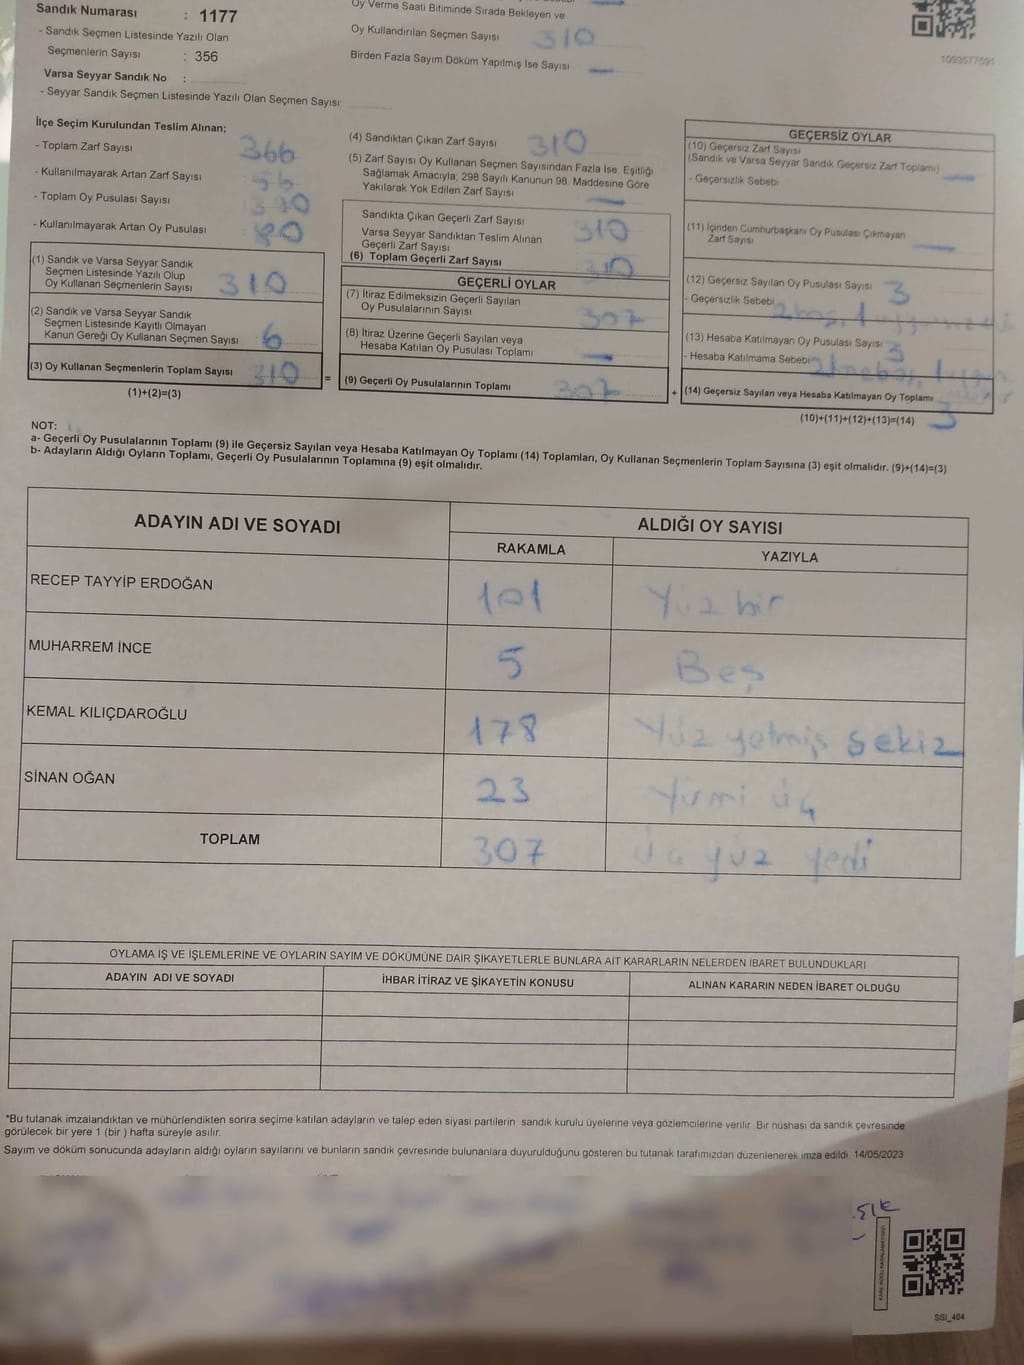 Sandık Numarası : 1177
- Sandık Seçmen Listesinde Yazılı Olan
Seçmenlerin Sayısı : 356
Varsa Seyyar Sandık No :
- Seyyar Sandık Seçmen Listesinde Yazılı Olan Seçmen Sayısı:
Oy Verme Saati Bitiminde Sırada Bekleyen ve
Oy Kullandırılan Seçmen Sayısı 310
Birden Fazla Sayım Döküm Yapılmış İse Sayısı —
1093577591
İlçe Seçim Kurulundan Teslim Alınan;
- Toplam Zarf Sayısı 366
- Kullanılmayarak Artan Zarf Sayısı : 56
- Toplam Oy Pusulası Sayısı
- Kullanılmayarak Artan Oy Pusulası : 80
(1) Sandık ve Varsa Seyyar Sandık
Seçmen Listesinde Yazılı Olup
Oy Kullanan Seçmenlerin Sayısı : 310
(2) Sandık ve Varsa Seyyar Sandık
Seçmen Listesinde Kayıtlı Olmayan
Kanun Gereği Oy Kullanan Seçmen Sayısı : 6
(3) Oy Kullanan Seçmenlerin Toplam Sayısı 310
(1)+(2)=(3)
=
(4) Sandıktan Çıkan Zarf Sayısı 310
(5) Zarf Sayısı Oy Kullanan Seçmen Sayısından Fazla İse, Eşitliği
Sağlamak Amacıyla; 298 Sayılı Kanunun 98. Maddesine Göre
Yakılarak Yok Edilen Zarf Sayısı —
Sandıkta Çıkan Geçerli Zarf Sayısı 310
Varsa Seyyar Sandıktan Teslim Alınan
Geçerli Zarf Sayısı
(6) Toplam Geçerli Zarf Sayısı 310
GEÇERLİ OYLAR
(7) İtiraz Edilmeksizin Geçerli Sayılan
Oy Pusulalarının Sayısı 307
(8) İtiraz Üzerine Geçerli Sayılan veya
Hesaba Katılan Oy Pusulası Toplamı —
(9) Geçerli Oy Pusulalarının Toplamı 307
+
GEÇERSİZ OYLAR
(10) Geçersiz Zarf Sayısı
(Sandık ve Varsa Seyyar Sandık Geçersiz Zarf Toplamı) —
- Geçersizlik Sebebi
(11) İçinden Cumhurbaşkanı Oy Pusulası Çıkmayan
Zarf Sayısı —
(12) Geçersiz Sayılan Oy Pusulası Sayısı 3
- Geçersizlik Sebebi
(13) Hesaba Katılmayan Oy Pusulası Sayısı 3
- Hesaba Katılmama Sebebi
(14) Geçersiz Sayılan veya Hesaba Katılmayan Oy Toplamı
(10)+(11)+(12)+(13)=(14) 3
NOT:
a- Geçerli Oy Pusulalarının Toplamı (9) ile Geçersiz Sayılan veya Hesaba Katılmayan Oy Toplamı (14) Toplamları, Oy Kullanan Seçmenlerin Toplam Sayısına (3) eşit olmalıdır. (9)+(14)=(3)
b- Adayların Aldığı Oyların Toplamı, Geçerli Oy Pusulalarının Toplamına (9) eşit olmalıdır.
ADAYIN ADI VE SOYADI
ALDIĞI OY SAYISI
RAKAMLA YAZIYLA
RECEP TAYYİP ERDOĞAN 101 Yüz bir
MUHARREM İNCE 5 Beş
KEMAL KILIÇDAROĞLU 178 Yüz yetmiş sekiz
SİNAN OĞAN 23 Yirmi üç
TOPLAM 307 Üç yüz yedi
OYLAMA İŞ VE İŞLEMLERİNE VE OYLARIN SAYIM VE DÖKÜMÜNE DAİR ŞİKAYETLERLE BUNLARA AİT KARARLARIN NELERDEN İBARET BULUNDUKLARI
ADAYIN ADI VE SOYADI İHBAR İTİRAZ VE ŞİKAYETİN KONUSU ALINAN KARARIN NEDEN İBARET OLDUĞU
*Bu tutanak imzalandıktan ve mühürlendikten sonra seçime katılan adayların ve talep eden siyasi partilerin sandık kurulu üyelerine veya gözlemcilerine verilir. Bir nüshası da sandık çevresinde
görülecek bir yere 1 (bir ) hafta süreyle asılır.
Sayım ve döküm sonucunda adayların aldığı oyların sayılarını ve bunların sandık çevresinde bulunanlara duyurulduğunu gösteren bu tutanak tarafımızdan düzenlenerek imza edildi. 14/05/2023
SSI_404